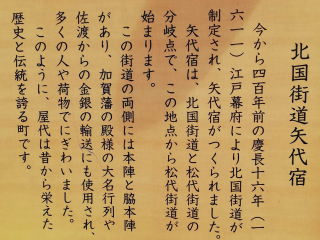 北国街道矢代宿
今から四百年前の慶長十六年（一
六一一）江戸幕府により北国街道が
制定され、矢代宿がつくられました。
矢代宿は、北国街道と松代街道の
分岐点で、この地点から松代街道が
始まります。
この街道の両側には本陣と脇本陣
があり、加賀藩の殿様の大名行列や
佐渡からの金銀の輸送にも使用され、
多くの人や荷物でにぎわいました。
このように、屋代は昔から栄えた
歴史と伝統を誇る町です。